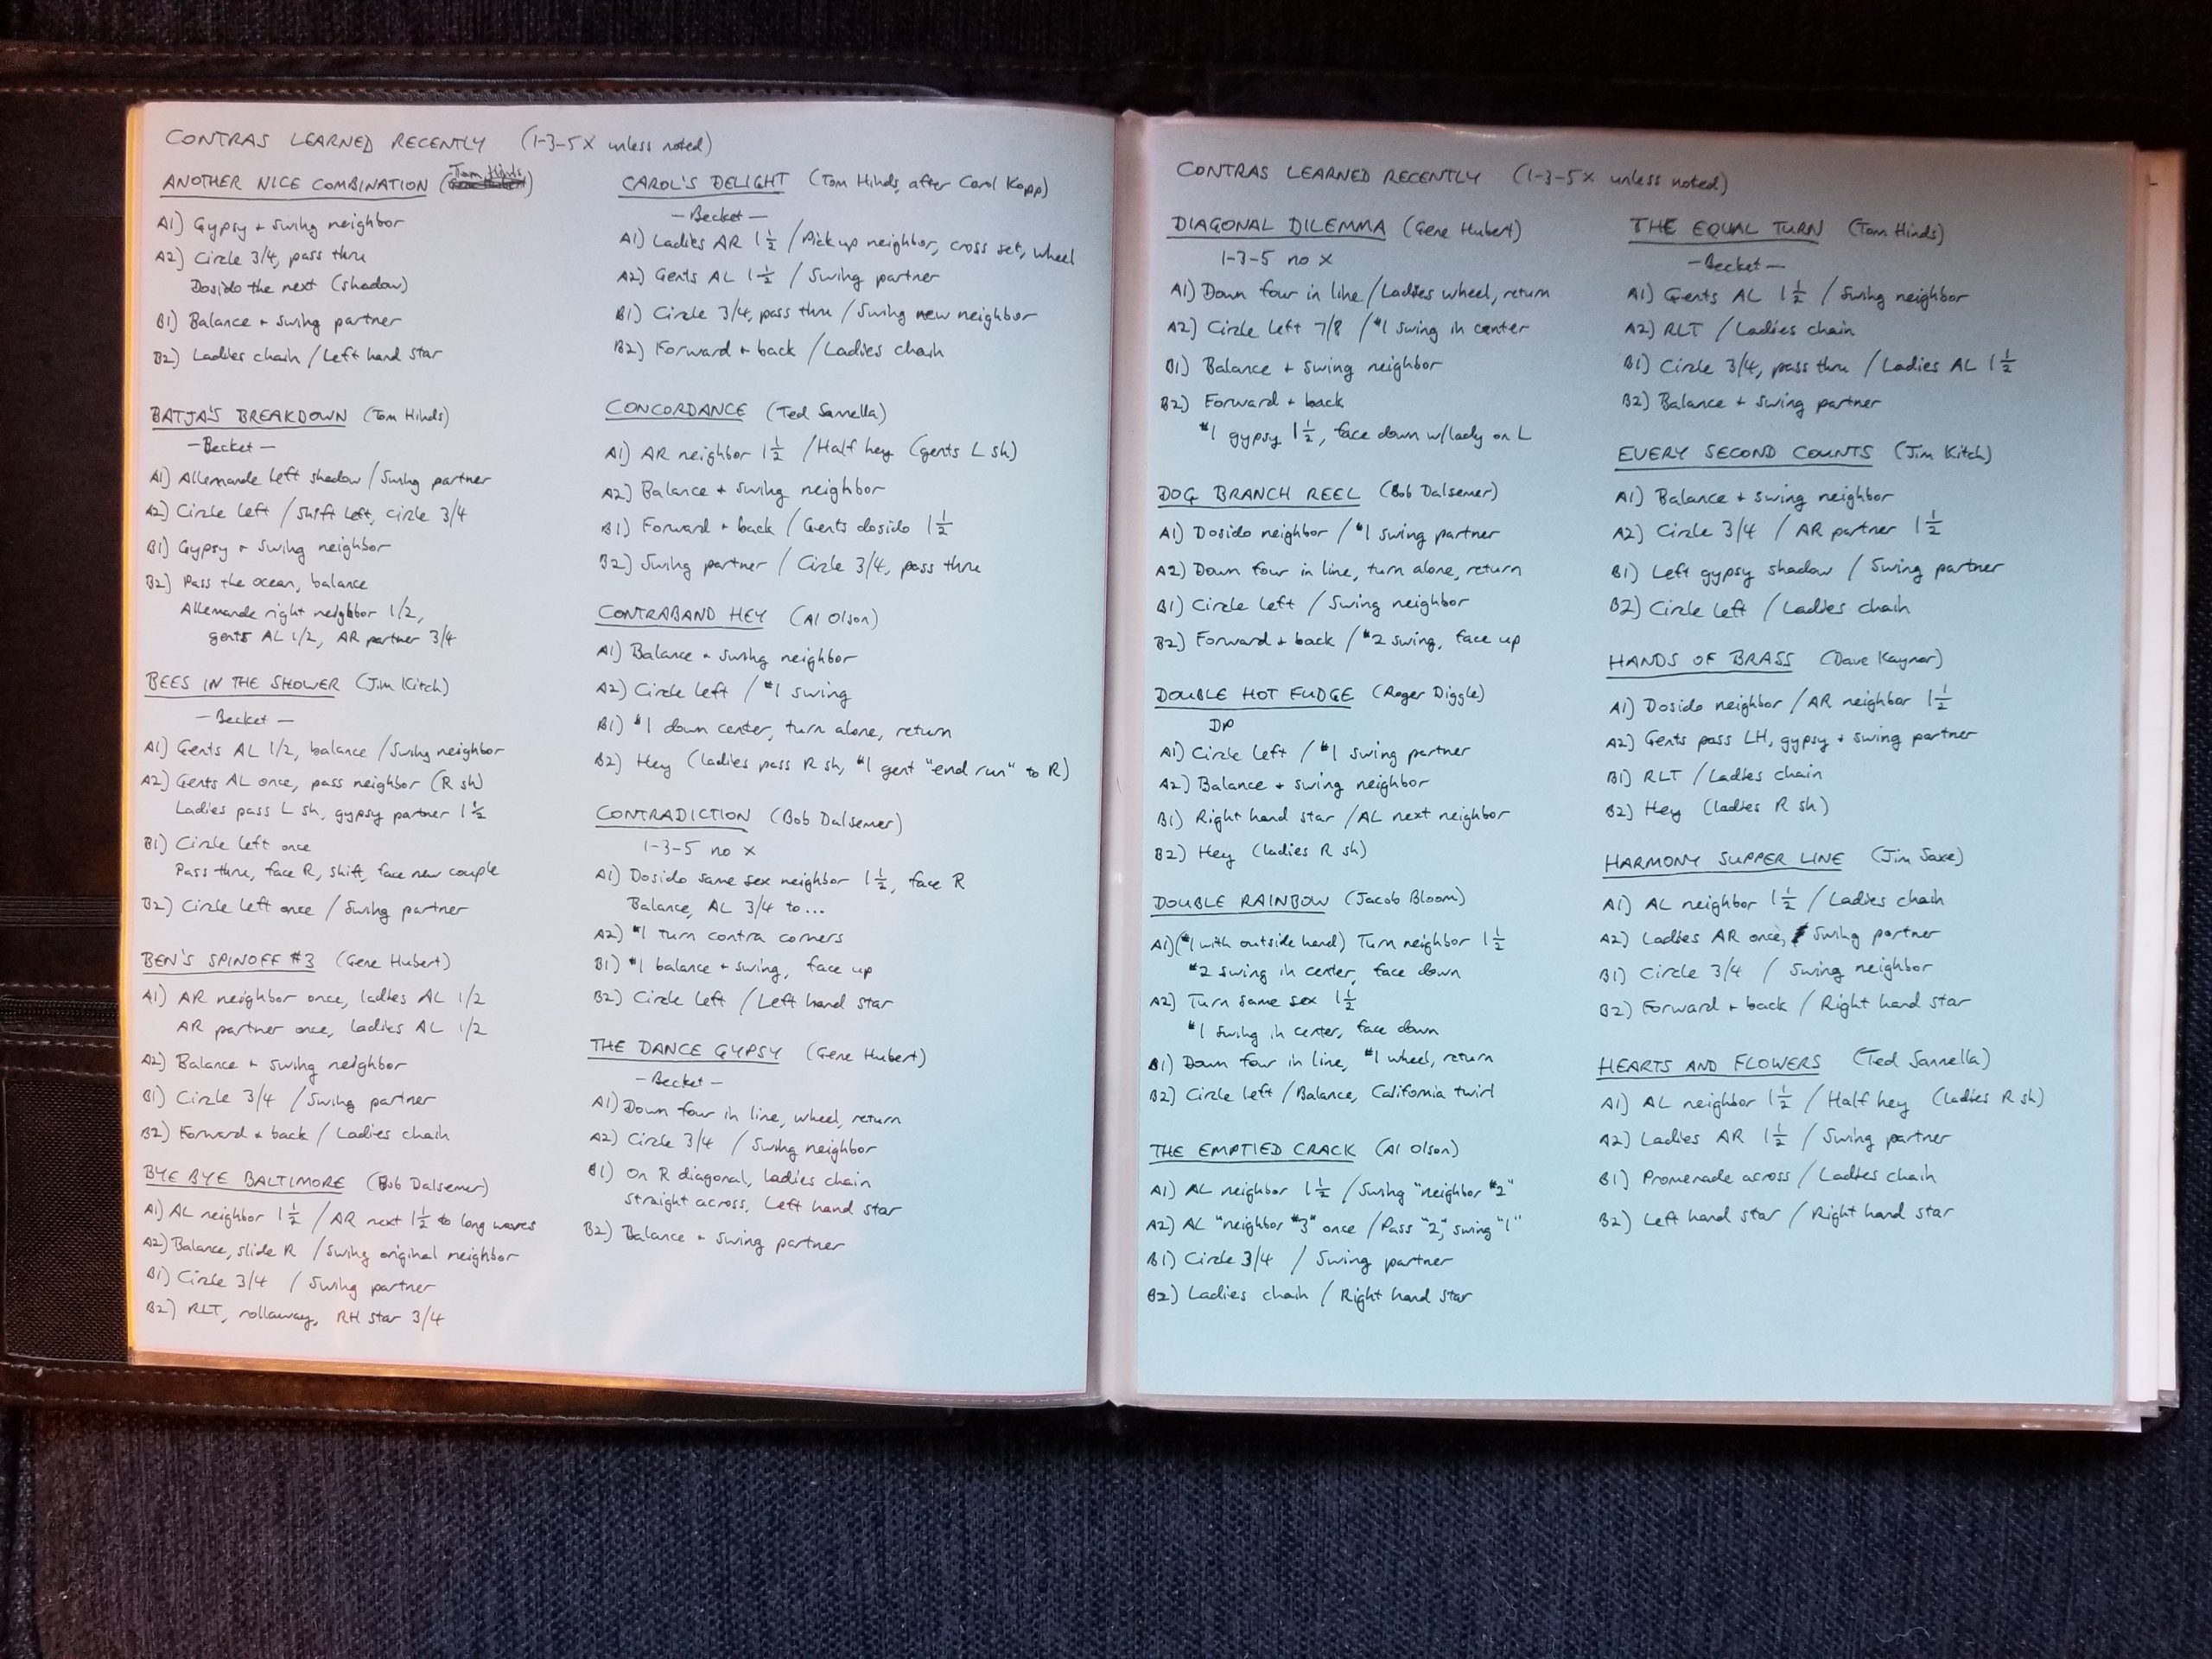 CONTRAS LEARNED RECENTLY (1-3-5 X unless noted)
ANOTHER NICE COMBINATION (Tom Hinds)
A1) Gypsy + swing neighbor
A2) Circle 3/4, pass thru
Dosido the next (shadow)
B1) Balance + swing partner
B2) Ladies chain / Left hand star
BATJA'S BREAKDOWN (Tom Hinds)
- Becket -
A1) Allemande left shadow / Swing partner
A2) Circle left / Shift left, circle 3/4
B1) Gypsy + swing neighbor
B2) Pass the ocean, balance
Allemande right neighbor 1/2,
gents AL 1/2, AR partner 3/4
BEES IN THE SHOWER (Jim Kitch)
- Becket -
A1) Gents AL 1/2, balance / Swing neighbor
A2) Gents AL once, pass neighbor (R sh)
Ladies pass L sh, gypsy partner 1 1/2
B1) Circle left once
Pass thru, face R, shift, face new couple
B2) Circle left once / Swing partner
BEN'S SPINOFF #3 (Gene Hubert)
A1) AR neighbor once, ladies AL 1/2
AR partner once, ladies AL 1/2
A2) Balance + swing neighbor
B1) Circle 3/4 / Swing partner
B2) Forward + back / Ladies chain
BYE BYE BALTIMORE (Bob Dalsemer)
A1) AL neighbor 1 1/2 / AR next 1 1/2 to long waves
A2) Balance, slide R / Swing original neighbor
B1) Circle 3/4 / Swing partner
B2) RLT, rollaway, RH star 3/4
CAROL'S DELIGHT (Tom Hinds, after Carol Kopp)
- Becket -
A1) Ladies AR 1 1/2 / Pick up neighbor, cross set, wheel
A2) Gents AL 1 1/2 / Swing partner
B1) Circle 3/4, pass thru / Swing new neighbor
B2) Forward + back / Ladies chain
CONCORDANCE (Ted Sannella)
A1) AR neighbor 1 1/2 / Half hey (gents L sh)
A2) Balance + swing neighbor
B1) Forward + back / Gents dosido 1 1/2
B2) Swing partner / Circle 3/4, pass thru
CONTRABAND HEY (Al Olson)
A1) Balance + swing neighbor
A2) Circle left / #1 swing
B1) #1 down center, turn alone, return
B2) Hey (ladies pass R sh, #1 gent "end run" to R)
CONTRADICTION (Bob Dalsemer)
1-3-5 no X
A1) Dosido same sex neighbor 1 1/2, face R
Balance, AL 3/4 to...
A2) #1 turn contra corners
B1) #1 balance + swing, face up
B2) Circle left / Left hand star
THE DANCE GYPSY (Gene Hubert)
- Becket -
A1) Down four in line, wheel, return
A2) Circle 3/4 / Swing neighbor
B1) On R diagonal, ladies chain
Straight across, Left hand star
B2) Balance + swing partner
CONTRAS LEARNED RECENTLY (1-3-5 X unless noted)
DIAGONAL DILEMMA (Gene Hubert)
1-3-5 no X
A1) Down four in line / Ladies wheel, return
A2) Circle left 7/8 / #1 swing in center
B1) Balance + swing neighbor
B2) Forward + back
#1 gypsy 1 1/2, face down w/lady on L
DOG BRANCH REEL (Bob Dalsemer)
A1) Dosido neighbor / #1 swing partner
A2) Down four in line, turn alone, return
B1) Circle left / Swing neighbor
B2) Forward + back / #2 swing, face up
DOUBLE HOT FUDGE (Roger Diggle)
DP
A1) Circle left / #1 swing partner
A2) Balance + swing neighbor
B1) Right hand star / AL next neighbor
B2) Hey (ladies R sh)
DOUBLE RAINBOW (Jacob Bloom)
A1) (#1 with outside hand) Turn neighbor 1 1/2
#2 swing in center, face down
A2) Turn same sex 1 1/2
#1 swing in center, face down
B1) Down four in line, #1 wheel, return
B2) Circle left / Balance, California twirl
THE EMPTIED CRACK (Al Olson)
A1) AL neighbor 1 1/2 / Swing "neighbor #2"
A2) AL "neighbor #3" once / Pass "2", swing "1"
B1) Circle 3/4 / Swing partner
B2) Ladies chain / Right hand star
THE EQUAL TURN (Tom Hinds)
- Becket -
A1) Gents AL 1 1/2 / Swing neighbor
A2) RLT / Ladies chain
B1) Circle 3/4, pass thru / Ladies AL 1 1/2
B2) Balance + swing partner
EVERY SECOND COUNTS (Jim Kitch)
A1) Balance + swing neighbor
A2) Circle 3/4 / AR partner 1 1/2
B1) Left gypsy shadow / Swing partner
B2) Circle left / Ladies chain
HANDS OF BRASS (Dave Kaynor)
A1) Dosido neighbor / AR neighbor 1 1/2
A2) Gents pass LH, gypsy + swing partner
B1) RLT / Ladies chain
B2) Hey (ladies R sh)
HARMONY SUPPER LINE (Jim Saxe)
A1) AL neighbor 1 1/2 / Ladies chain
A2) Ladies AR once, Swing partner
B1) Circle 3/4 / Swing neighbor
B2) Forward + back / Right hand star
HEARTS AND FLOWERS (Ted Sannella)
A1) AL neighbor 1 1/2 / Half hey (ladies R sh)
A2) Ladies AR 1 1/2 / Swing partner
B1) Promenade across / Ladies chain
B2) Left hand star / Right hand star